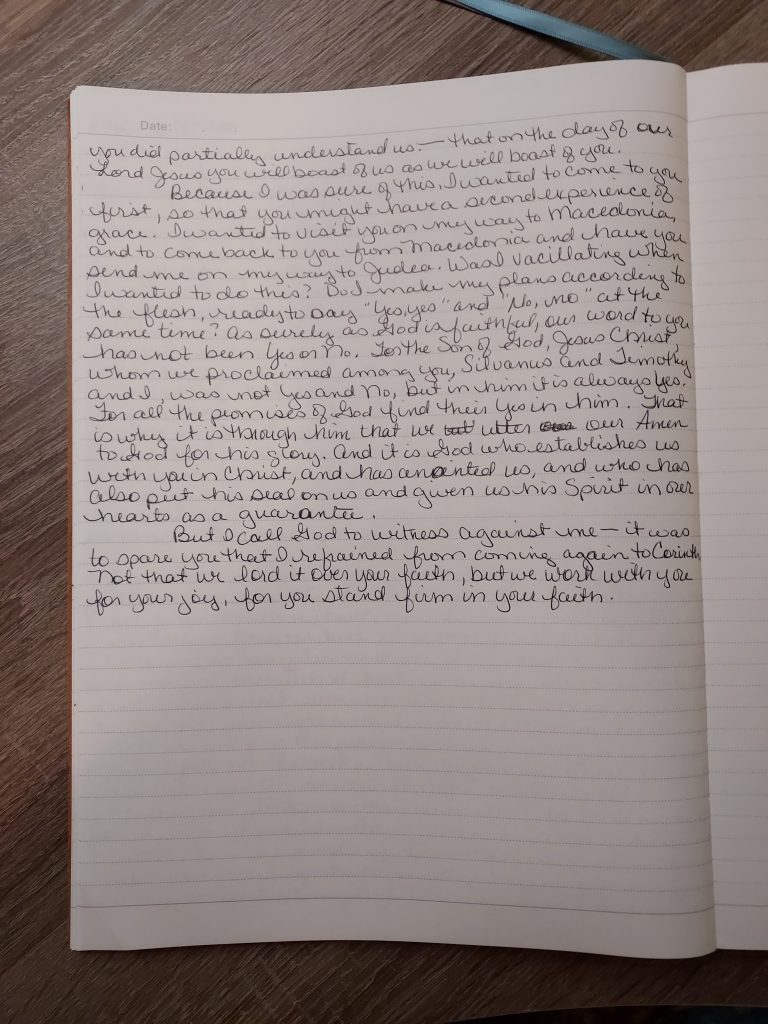 Date:
you did partially understand us — that on the day of our
Lord Jesus you will boast of us as we will boast of you.
Because I was sure of this, I wanted to come to you
first, so that you might have a second experience of
grace. I wanted to visit you on my way to Macedonia,
and to come back to you from Macedonia and have you
send me on my way to Judea. Was I vacillating when
I wanted to do this? Do I make my plans according to
the flesh, ready to say "Yes, yes" and "No, no" at the
same time? As surely as God is faithful, our word to you
has not been Yes or No. For the Son of God, Jesus Christ,
whom we proclaimed among you, Silvanus and Timothy
and I, was not Yes and No, but in him it is always Yes.
For all the promises of God find their Yes in him. That
is why it is through him that we utter our Amen
to God for his glory. And it is God who establishes us
with you in Christ, and has anointed us, and who has
also put his seal on us and given us his Spirit in our
hearts as a guarantee.
But I call God to witness against me — it was
to spare you that I refrained from coming again to Corinth
Not that we lord it over your faith, but we work with you
for your joy, for you stand firm in your faith.